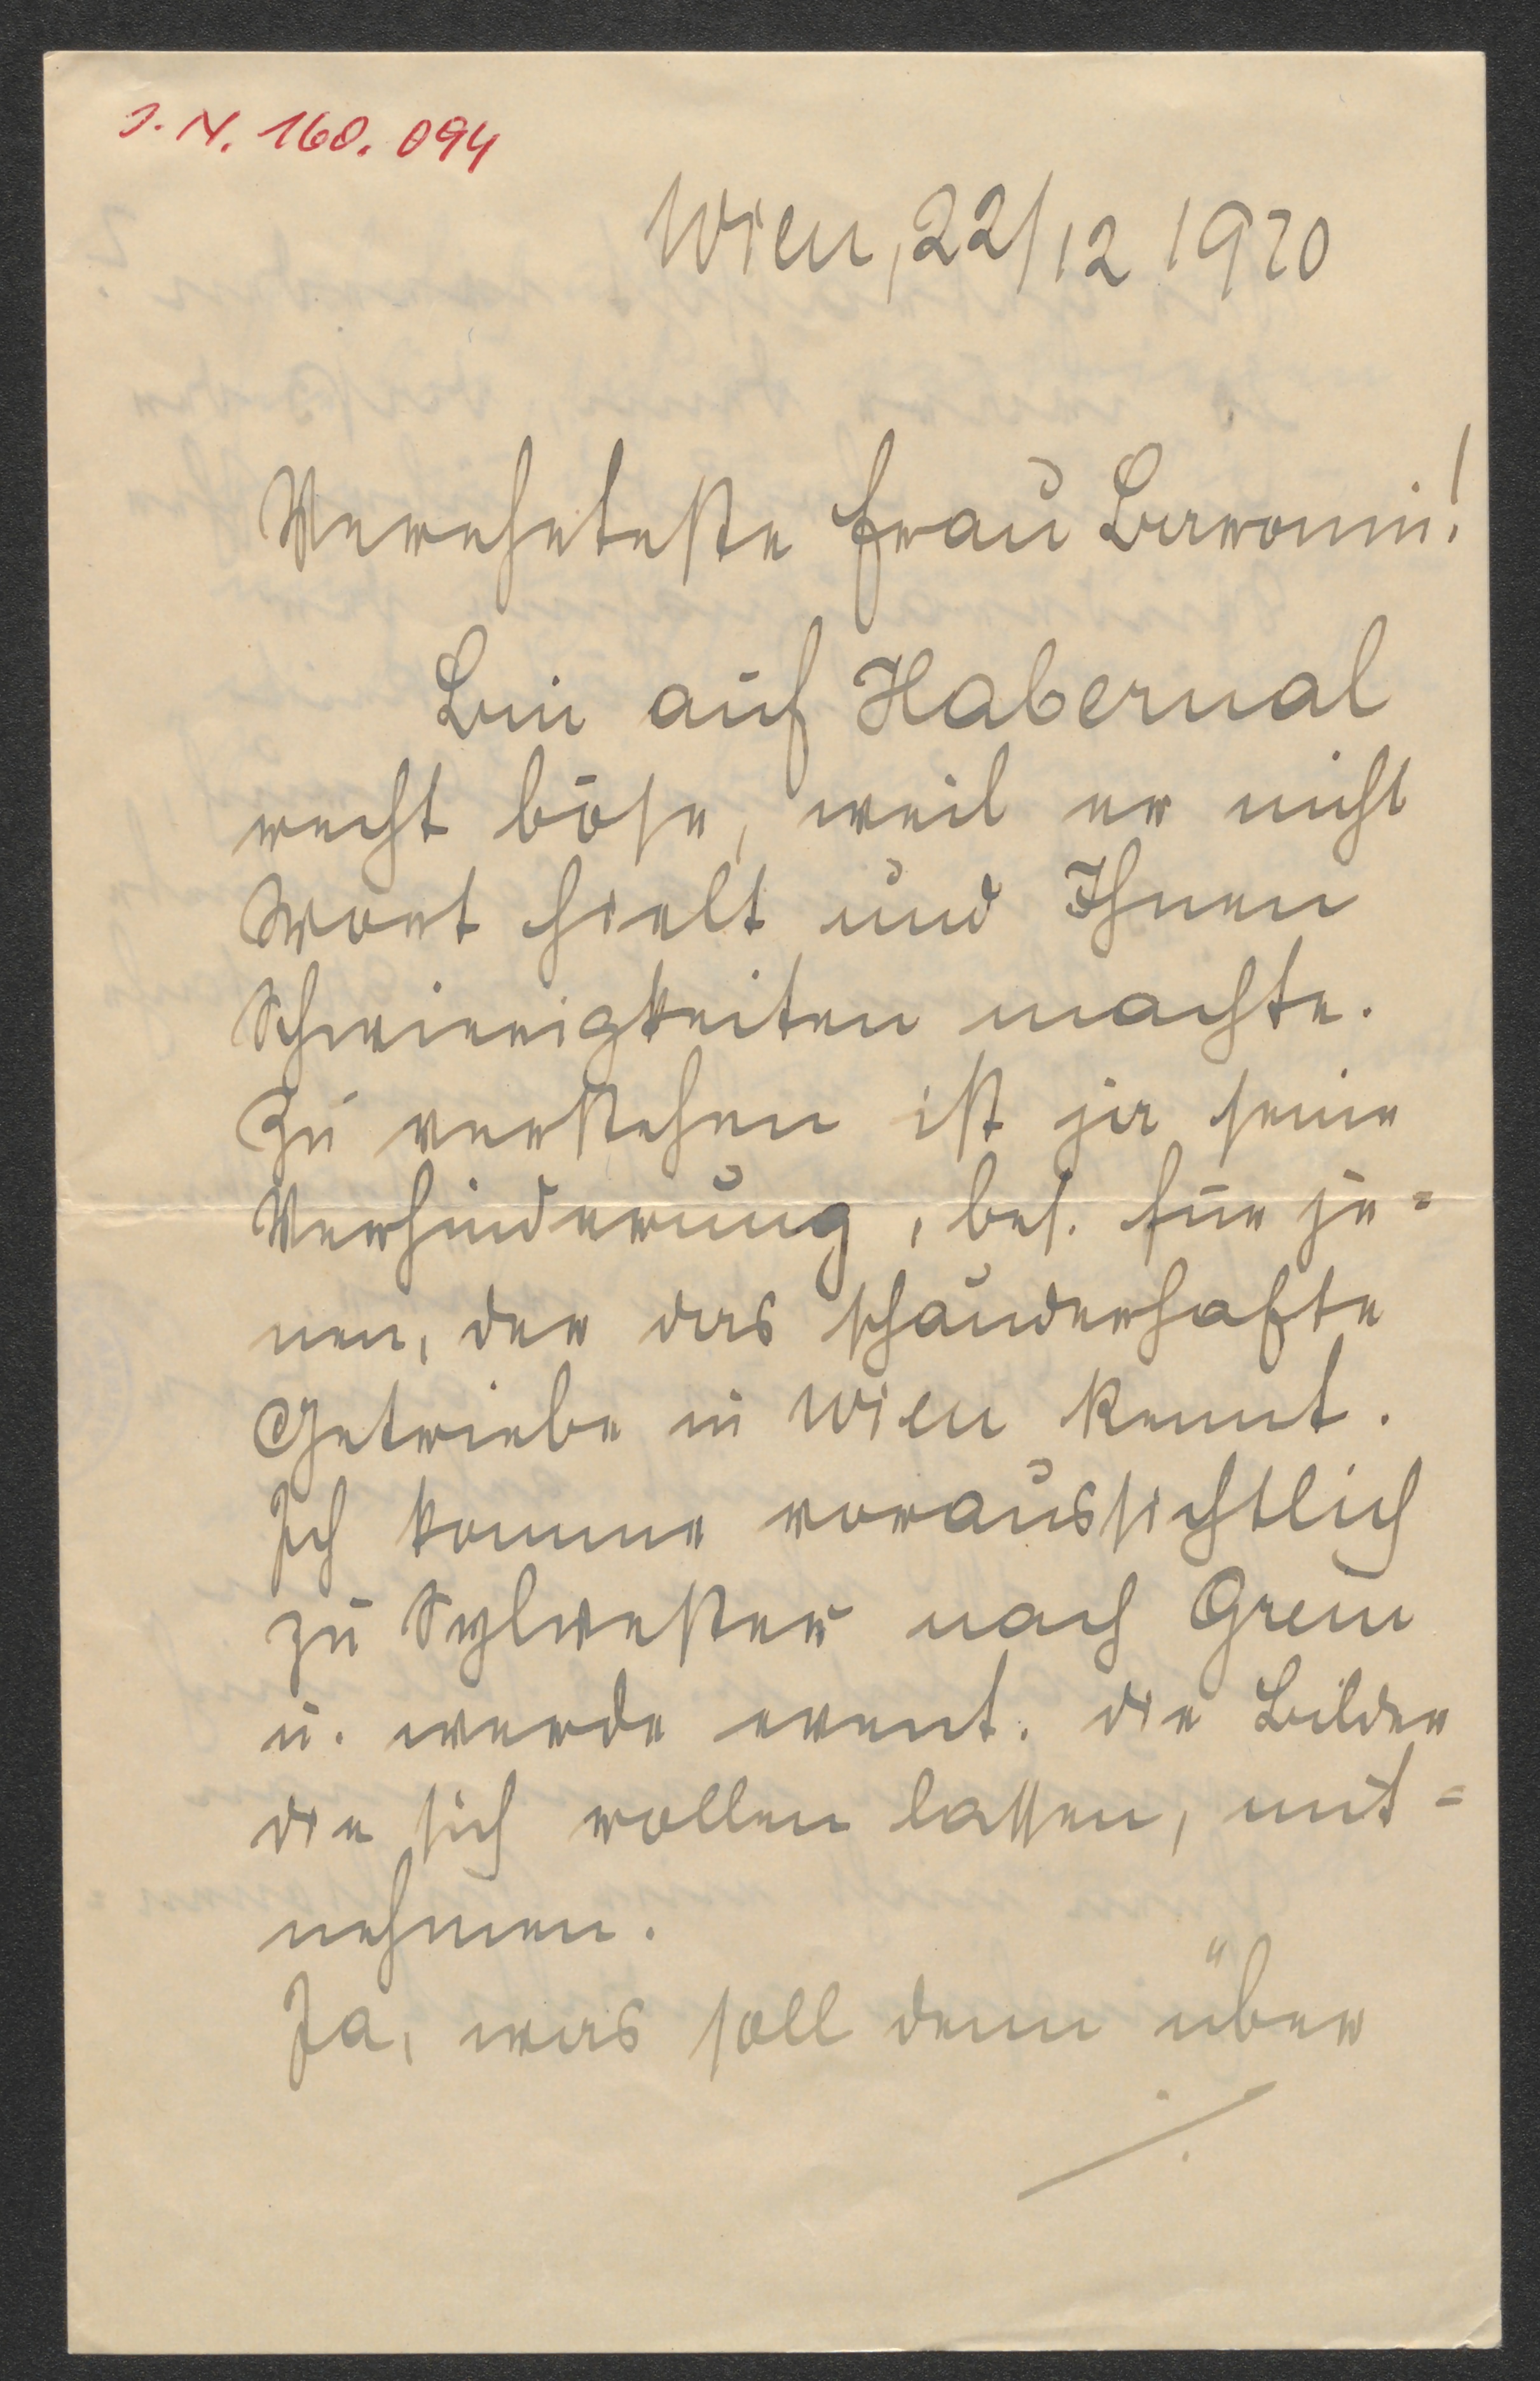 J. N. 160.094
Wien, 22/12 1920
Verehrteste Frau Baronin!
Bin auf Habernal
recht böse, weil er nicht
Wort hielt und Ihnen
Schwierigkeiten machte.
Zu verstehen ist ja seine
Verhinderung, bes. für je=
nen, der das schauderhafte
Getriebe in Wien kennt.
Ich komme voraussichtlich
zu Sylvester nach Grein
u. werde event. die Bilder
die sich rollen lassen, mit=
nehmen.
Ja, was soll denn über
./.